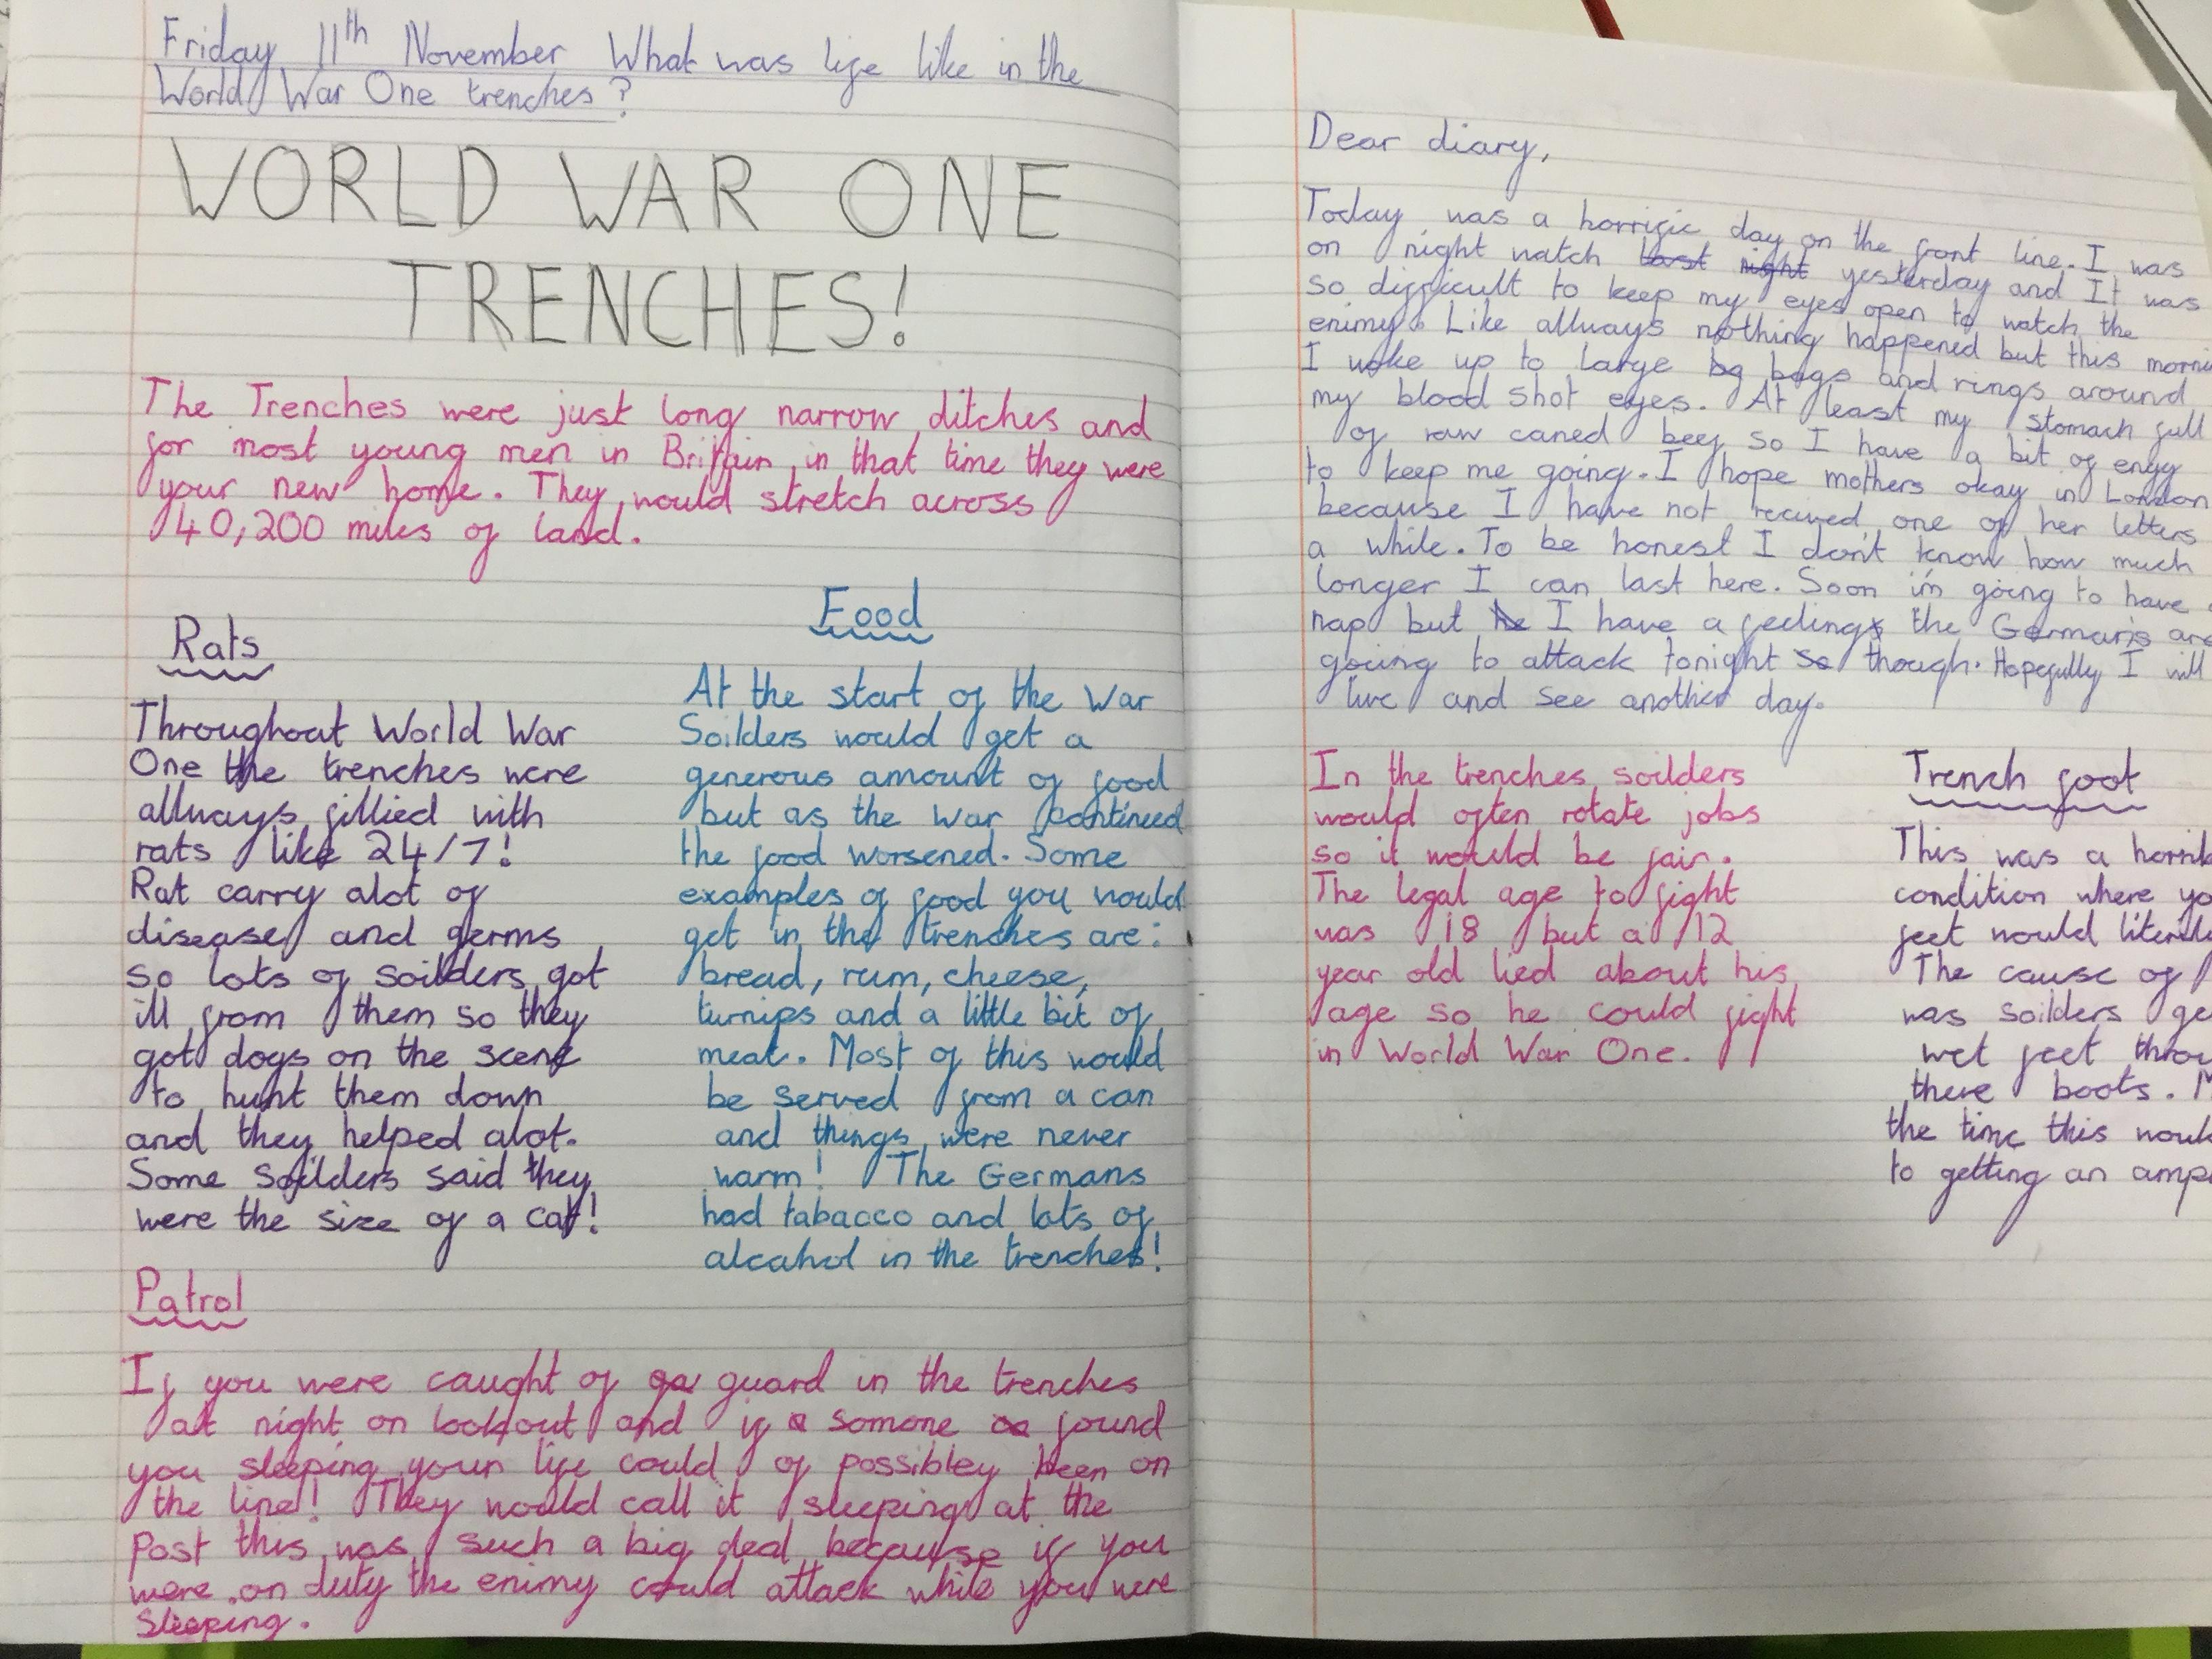 Friday 11th November What was life like in the
World War One trenches?
WORLD WAR ONE
TRENCHES!
The Trenches were just long narrow ditches and
for most young men in Britain in that time they were
your new home. They would stretch across
40,200 miles of land.
Rats
Throughout World War
One the trenches were
allways fillied with
rats like 24/7!
Rat carry alot of
disease and germs
so lots of soilders got
ill from them so they
got dogs on the scene
to hunt them down
and they helped alot.
Some soilders said they
were the size of a cat!
Food
At the start of the War
Soilders would get a
generous amount of food
but as the war continued
the food worsened. Some
examples of food you would
get in the trenches are:
bread, rum, cheese,
turnips and a little bit of
meat. Most of this would
be served from a can
and things were never
warm! The Germans
had tabacco and lots of
alcahol in the trenches!
Patrol
If you were caught of guard in the trenches
at night on lookout and if somone found
you sleeping your life could of possibley been on
the line! They would call it sleeping at the
Post this was such a big deal because if you
were on duty the enimy could attack while you were
Sleeping.
Dear diary,
Today was a horrific day on the front line. I was
on night watch last night yesterday and It was
so difficult to keep my eyes open to watch the
enimy. Like allways nothing happened but this
I woke up to large bags and rings around
my blood shot eyes. At least my stomach full
of raw caned beef so I have a bit of engy
to keep me going. I hope mothers okay in London
because I have not recived one of her letters
a while. To be honest I don't know how much
longer I can last here. Soon i'm going to have
nap but I have a feeling the Germans are
going to attack tonight though. Hopefully I will
live and see another day.
In the trenches soilders
would often rotate jobs
so it would be fair.
The legal age to fight
was 18 but a 12
year old lied about his
age so he could fight
in World War One.
Trench foot
This was a
condition where
feet would
The cause of
was soilders
wet feet
there boots.
the time this
to getting an